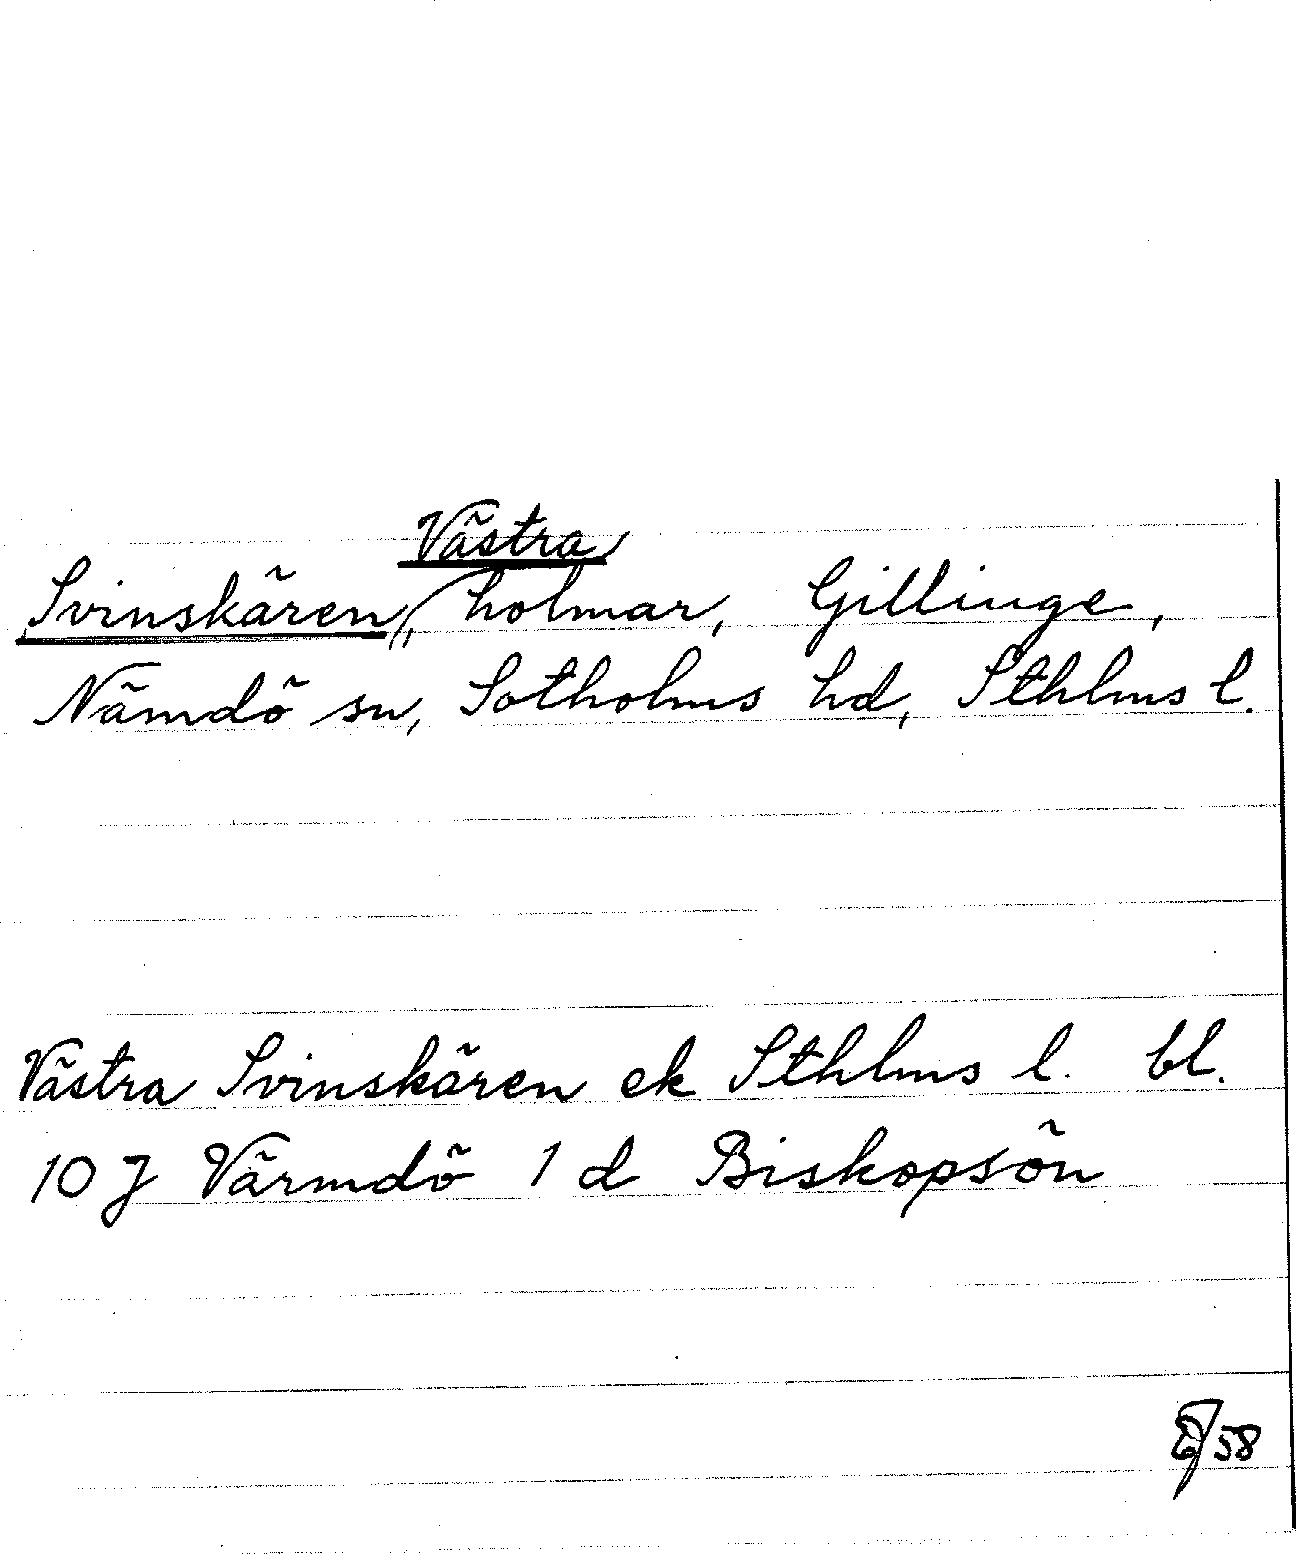 Västra
Svinskären, holmar, Gillinge,
Nämdö sn, Sotholms hd, Sthlms l.
Västra Svinskären ek Sthlms l. bl.
10 J Värmdö 1 d Biskopsön
58